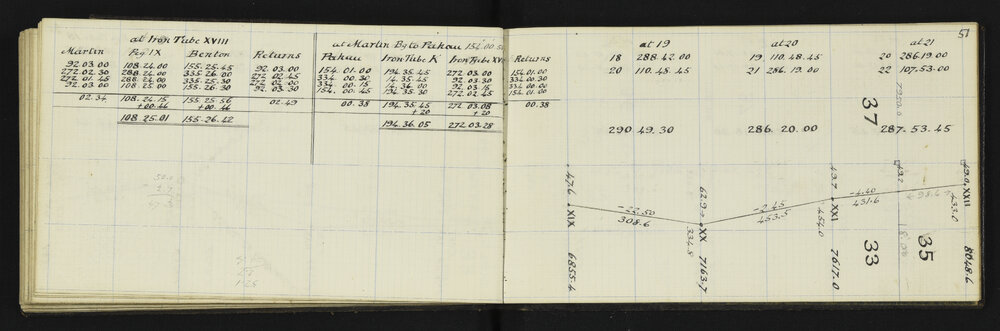 at Iron Tube XVIII
Martin Peg IX Benton Returns
92.03.00 108.24.00 155.25.45 92.03.00
272.02.30 288.24.00 335.26.00 272.02.45
272.01.45 288.24.00 335.25.30 272.02.00
92.03.00 108.25.00 155.26.30 92.03.30
02.34 108.24.15 155.25.56 02.49
+00.46 +00.46
108.25.01 155.26.42
at Martin Bg to Pakau 154.00.50
Pakau Iron Tube K Iron Tube XVI Returns
154.01.00 194.35.45 272.03.00 154.01.00
334.00.30 14.35.45 92.03.30 334.00.30
334.00.15 14.36.00 92.03.15 334.00.00
154.00.45 194.35.30 272.02.45 154.01.00
00.38 194.35.45 272.03.08 00.38
+20 +20
194.36.05 272.03.28
51
at 19 at 20 at 21
18 288.42.00 19 110.48.45 20 286.19.00
20 110.48.45 21 286.19.00 22 107.53.00
290.49.30 286.20.00 287.53.45
37
47.6 XIX 6855.4
-22.50
308.6
62.9 XX 7163.7
334.8
-2.45
453.5
43.7 XXI 7617.0
454.0
-4.40
431.6
43.2
49.0 XXII 8048.6
433.0
33
35